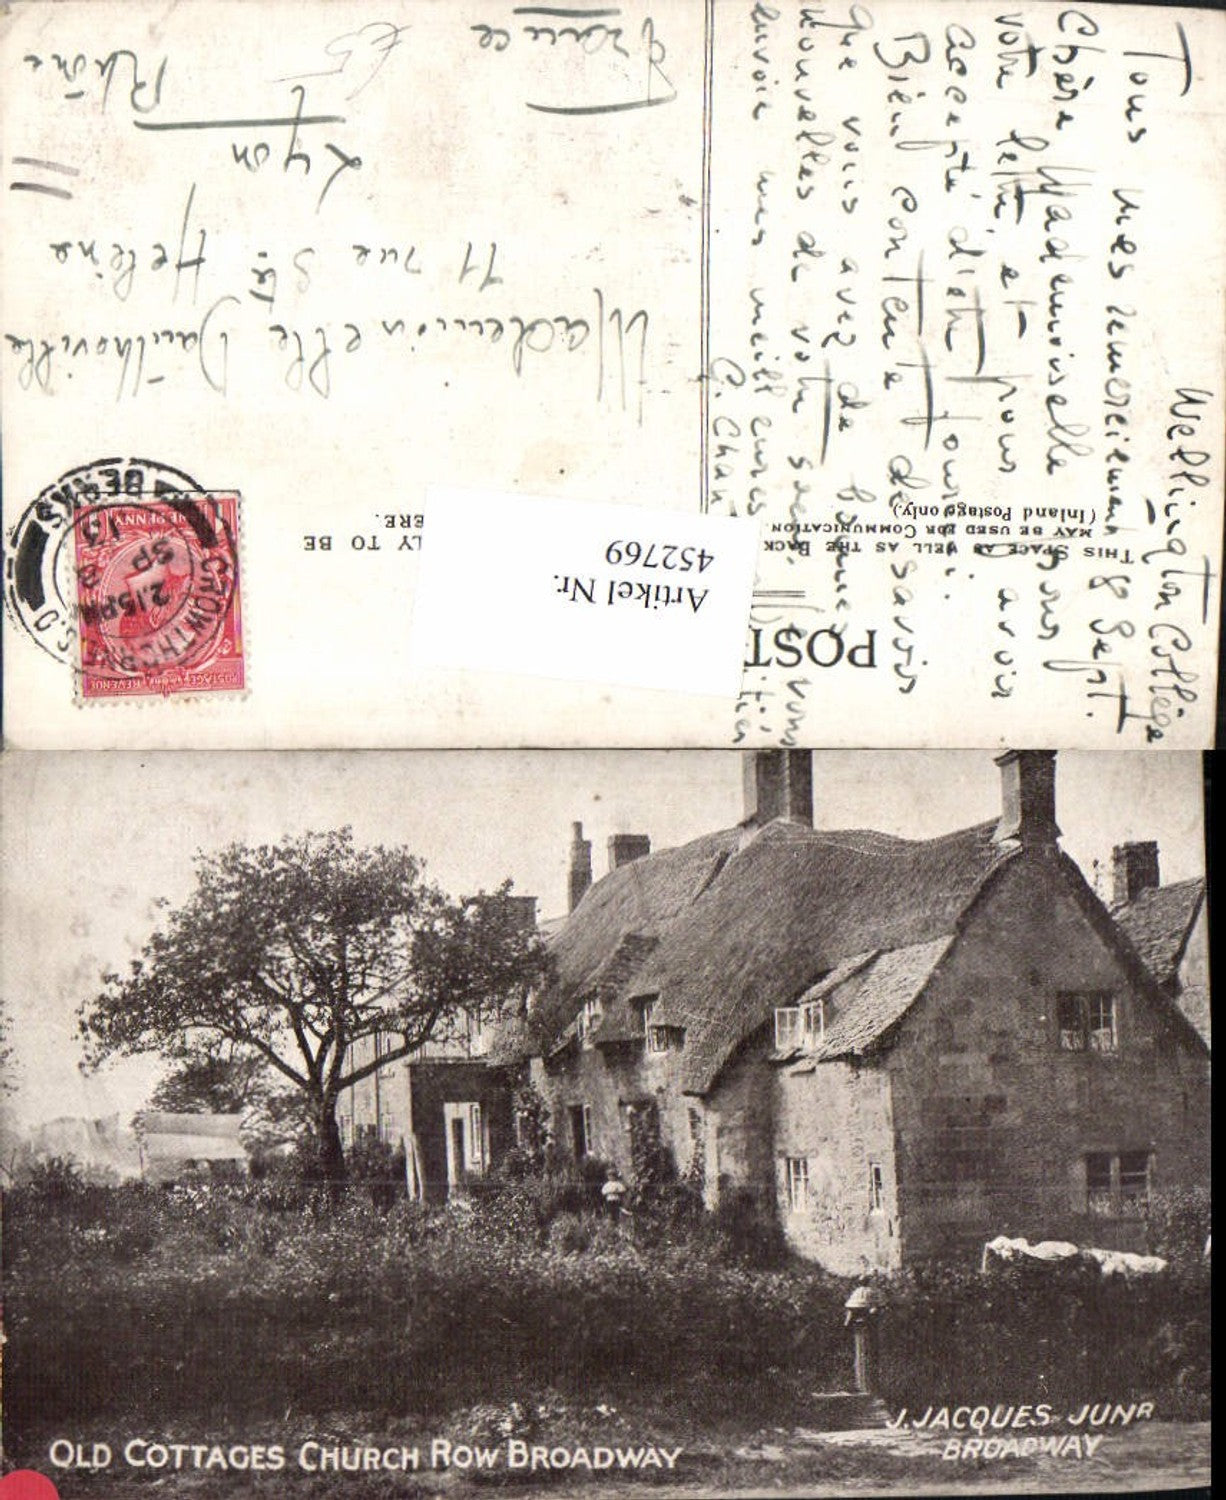 POST
THIS SPACE AS WELL AS THE BACK
MAY BE USED FOR COMMUNICATION.
(Inland Postage only.)
LY TO BE
ERE.
Artikel Nr.
452769
POSTAGE REVENUE
ONE PENNY
CROWTHORNE S.O
BERKS
2.15PM
SP 8
13
Wellington Collège
8 Sept.
Tous mes remerciements
Chère Mademoiselle pour
votre lettre, et pour avoir
accepté d'être
Bien contente de savoir
que vous avez de bonnes
nouvelles de votre
envoie mes meilleures
Mademoiselle
11 rue Ste Hélène
Lyon
Rhône
France
OLD COTTAGES CHURCH ROW BROADWAY
J. JACQUES JUNR
BROADWAY